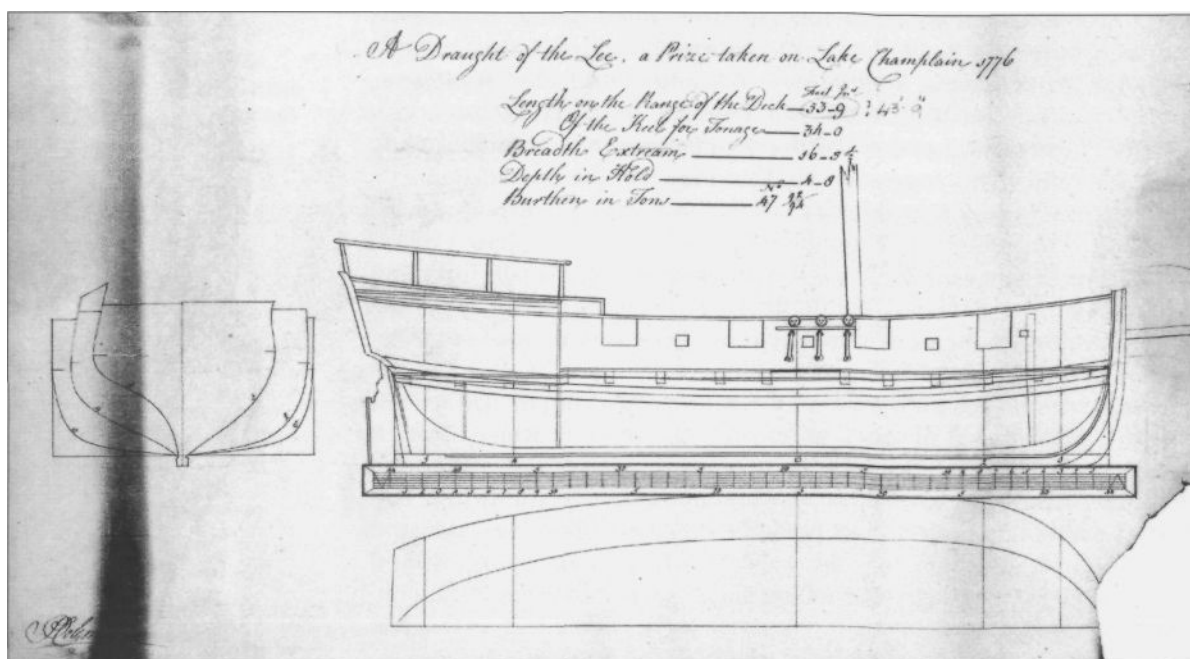 A Draught of the Lee, a Prize taken on Lake Champlain 1776
Feet Ins
Length on the Range of the Deck — 33-9 ? 43'-9"
Of the Keel for Tonage — 34-0
Breadth Extream — 16-3½
Depth in Hold — 4-8
No
Burthen in Tons — 47